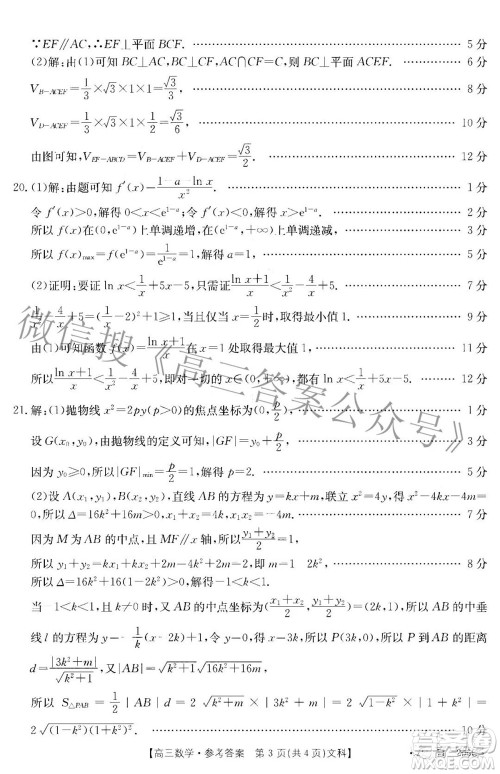 ∵EF∥AC,∴EF⊥平面 BCF. 5 分
(2)解:由(1)可知 BC⊥AC,BC⊥CF,AC∩CF=C,则 BC⊥平面 ACEF. 6 分
V_{B-ACEF}=\frac{1}{3}×\sqrt{3}×1×1=\frac{\sqrt{3}}{3}, 8 分
V_{D-ACEF}=\frac{1}{3}×\sqrt{3}×1×\frac{1}{2}=\frac{\sqrt{3}}{6}, 10 分
由图可知,V_{EF-ABCD}=V_{B-ACEF}+V_{D-ACEF}=\frac{\sqrt{3}}{2}. 12 分
20.(1)解:由题可知 f′(x)=\frac{1-a-\ln x}{x^2}. 1 分
令 f′(x)>0,解得 0<x<e^{1-a};令 f′(x)<0,解得 x>e^{1-a}. 2 分
所以 f(x)在(0,e^{1-a})上单调递增,在(e^{1-a},+∞)上单调递减, 3 分
所以 f(x)_{max}=f(e^{1-a})=\frac{1}{e^{1-a}}=1,解得 a=1. 5 分
(2)证明:要证 ln x<\frac{1}{x}+5x-5,只需证\frac{\ln x+1}{x}<\frac{1}{x^2}-\frac{4}{x}+5. 7 分
令\frac{4}{x}+5=(\frac{1}{x}-2)^2+1≥1,当且仅当 x=\frac{1}{2}时,取得最小值 1. 9 分
由(1)可知函数 f(x)=\frac{\ln x+1}{x}在 x=1 处取得最大值 1, 11 分
所以\frac{\ln x+1}{x}<\frac{1}{x^2}-\frac{4}{x}+5,即对一切的 x∈(0,+∞),ln x<\frac{1}{x}+5x-5. 12 分
21.解:(1)抛物线 x^2=2py(p>0)的焦点坐标为(0,\frac{p}{2}), 1 分
设 G(x_0,y_0),由抛物线的定义可知,|GF|=y_0+\frac{p}{2}, 3 分
因为 y_0≥0,所以|GF|_{min}=\frac{p}{2}=1,解得 p=2. 5 分
(2)设 A(x_1,y_1),B(x_2,y_2),直线 AB 的方程为 y=kx+m,联立 x^2-4kx-4m=0,
所以 Δ=16k^2+16m>0,x_1+x_2=4k,x_1x_2=-4m. 7 分
因为 M 为 AB 的中点,且 MF∥x 轴,所以\frac{y_1+y_2}{2}=1,
所以 y_1+y_2=kx_1+kx_2+2m=4k^2+2m=2,即 m=1 2k^2. 8 分
所以 Δ=16k^2+16(1-2k^2)>0,解得-1<k<1.
当-1<k<1,且 k≠0 时,又因为 AB 的中点坐标为(\frac{x_1+x_2}{2},\frac{y_1+y_2}{2})=(2k,1),所以 AB 的中垂
线 l 的方程为 y=-\frac{1}{k}(x-2k)+1,令 y=0,得 x=3k,所以 P(3k,0),所以 P 到 AB 的距离
d=\frac{|3k^2+m|}{\sqrt{k^2+1}},又|AB|=\sqrt{k^2+1}\sqrt{16k^2+16m},
所以 S_{△PAB}=\frac{1}{2}|AB|d=2\sqrt{k^2+m}|3k^2+m|=2\sqrt{1-k^2}(k^2+1)=
2\sqrt{(1-k^2)(1+k^2)^2}. 10 分
【高三数学·参考答案 第 3 页(共 4 页)文科】
微信搜《高三答案公众号》